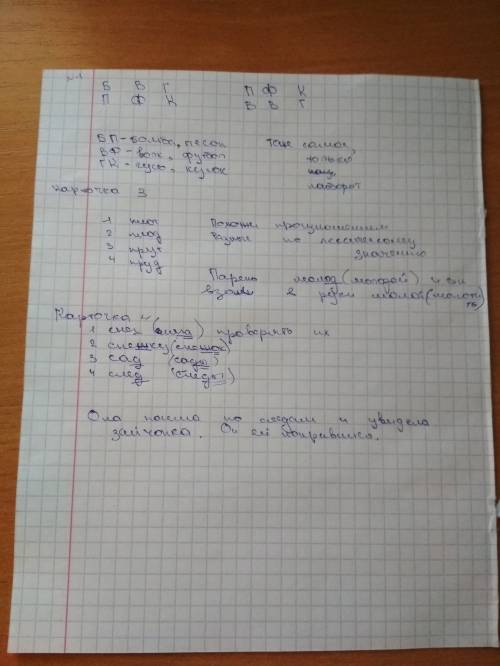 №1
Б В Г П Ф К
П Ф К Б В Г
БП-бомба, песок Тоже самое,
ВФ-волк, футбол только
ГК-гусь, кусок наоборот
карточка 3
1 плот Похожи произношением
2 плод Разные по лексическому
3 прут значению
4 пруд
Парень молод (молодой) и он
взял 2 руки молот (молоты
Карточка 4
1 снег (зима) проверять их
2 снежку (снежок)
3 сад (сады)
4 след (следы)
Оля пошла по следам и увидела
зайчонка. Он ей понравился.